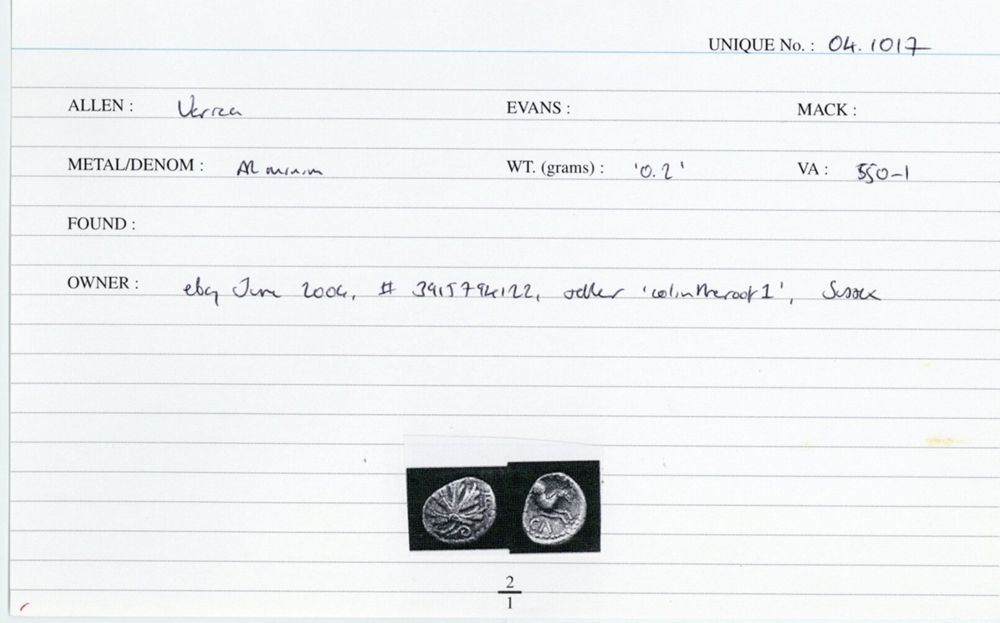 UNIQUE No. : 04.1017
ALLEN : Verica EVANS : MACK :
METAL/DENOM : AR minim WT. (grams) : '0.2' VA : 550-1
FOUND :
OWNER : ebay June 2004, # 3915794122, seller 'colintheroof1', Sussex
2
1